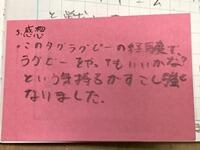 5.感想
・このタグラグビーの経験で、
ラグビーをやってもいいかな?
という気持ちがすこし強く
なりました。